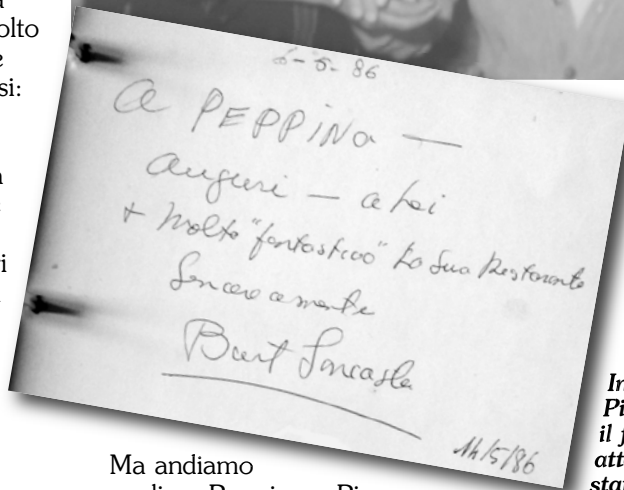 olto
e
si:
ri
6-5-86
a PEPPINA —
auguri — a Lei
+ molto "fantastico" La Sua Restorante
Sinceramente
Burt Lancaster
14/5/86
In
Pi
il f
att
sta
Ma andiamo